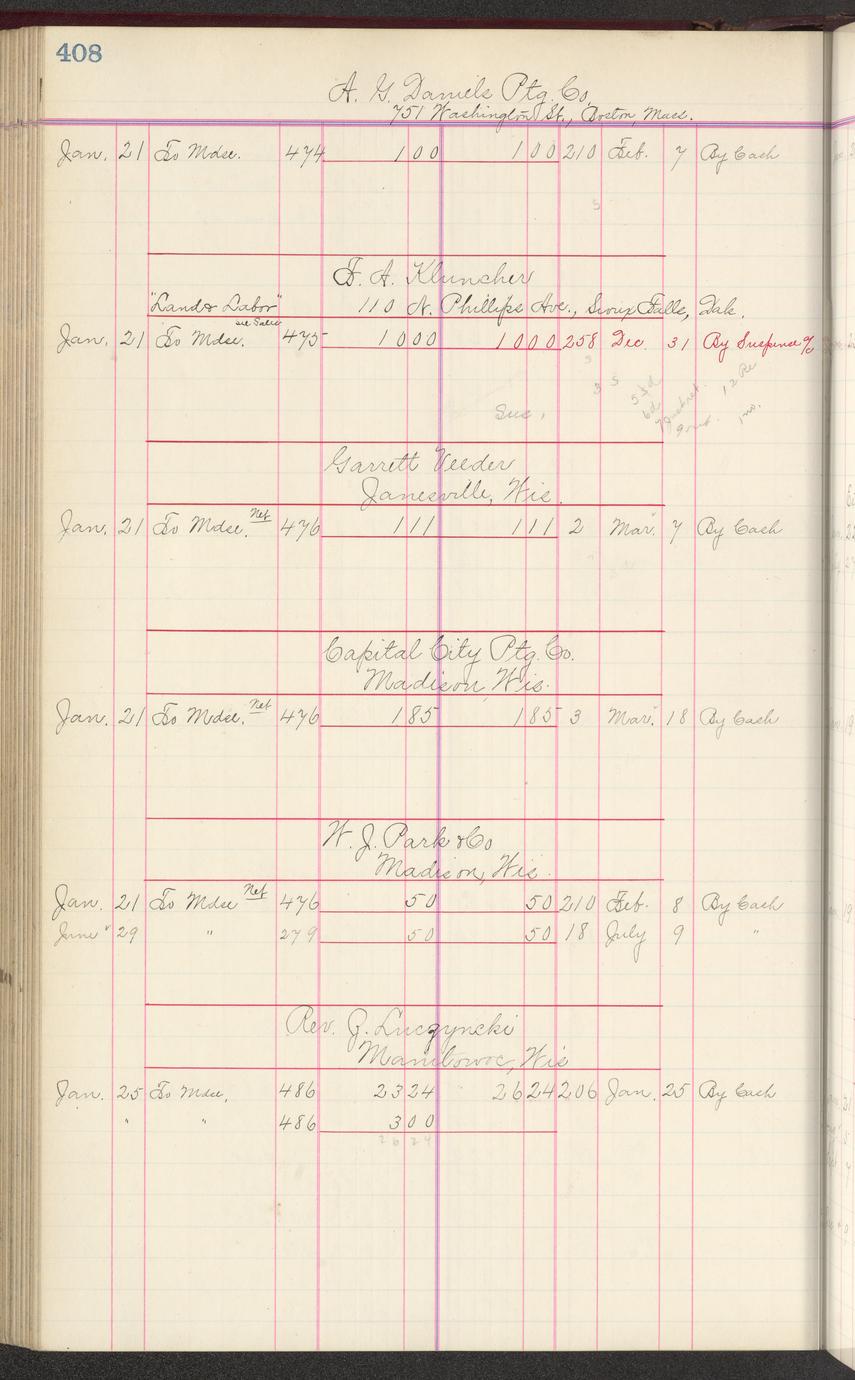 408
A. G. Daniels Ptg. Co.
751 Washington St., Boston, Mass.
Jan. 21 To Mdse. 474 1 00 1 00 210 Feb. 7 By Cash
F. A. Kluncher
"Land & Labor" 110 N. Phillips Ave., Sioux Falls, Dak.
Jan. 21 To Mdse. 475 10 00 10 00 258 Dec. 31 By Suspense a/c
Sus.
Garrett Veeder
Janesville, Wis.
Jan. 21 To Mdse. Net 476 1 11 1 11 2 Mar. 7 By Cash
Capital City Ptg. Co.
Madison, Wis.
Jan. 21 To Mdse. Net 476 1 85 1 85 3 Mar. 18 By Cash
W. J. Park & Co
Madison, Wis.
Jan. 21 To Mdse Net 476 50 50 210 Feb. 8 By Cash
June " 29 " 279 50 50 18 July 9 "
Rev. J. Luczyncki
Manitowoc, Wis
Jan. 25 To Mdse, 486 23 24 26 24 206 Jan. 25 By Cash
" " 486 3 00
26 24